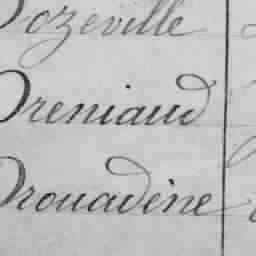 Dozeville
Dreniaud
Drouadène